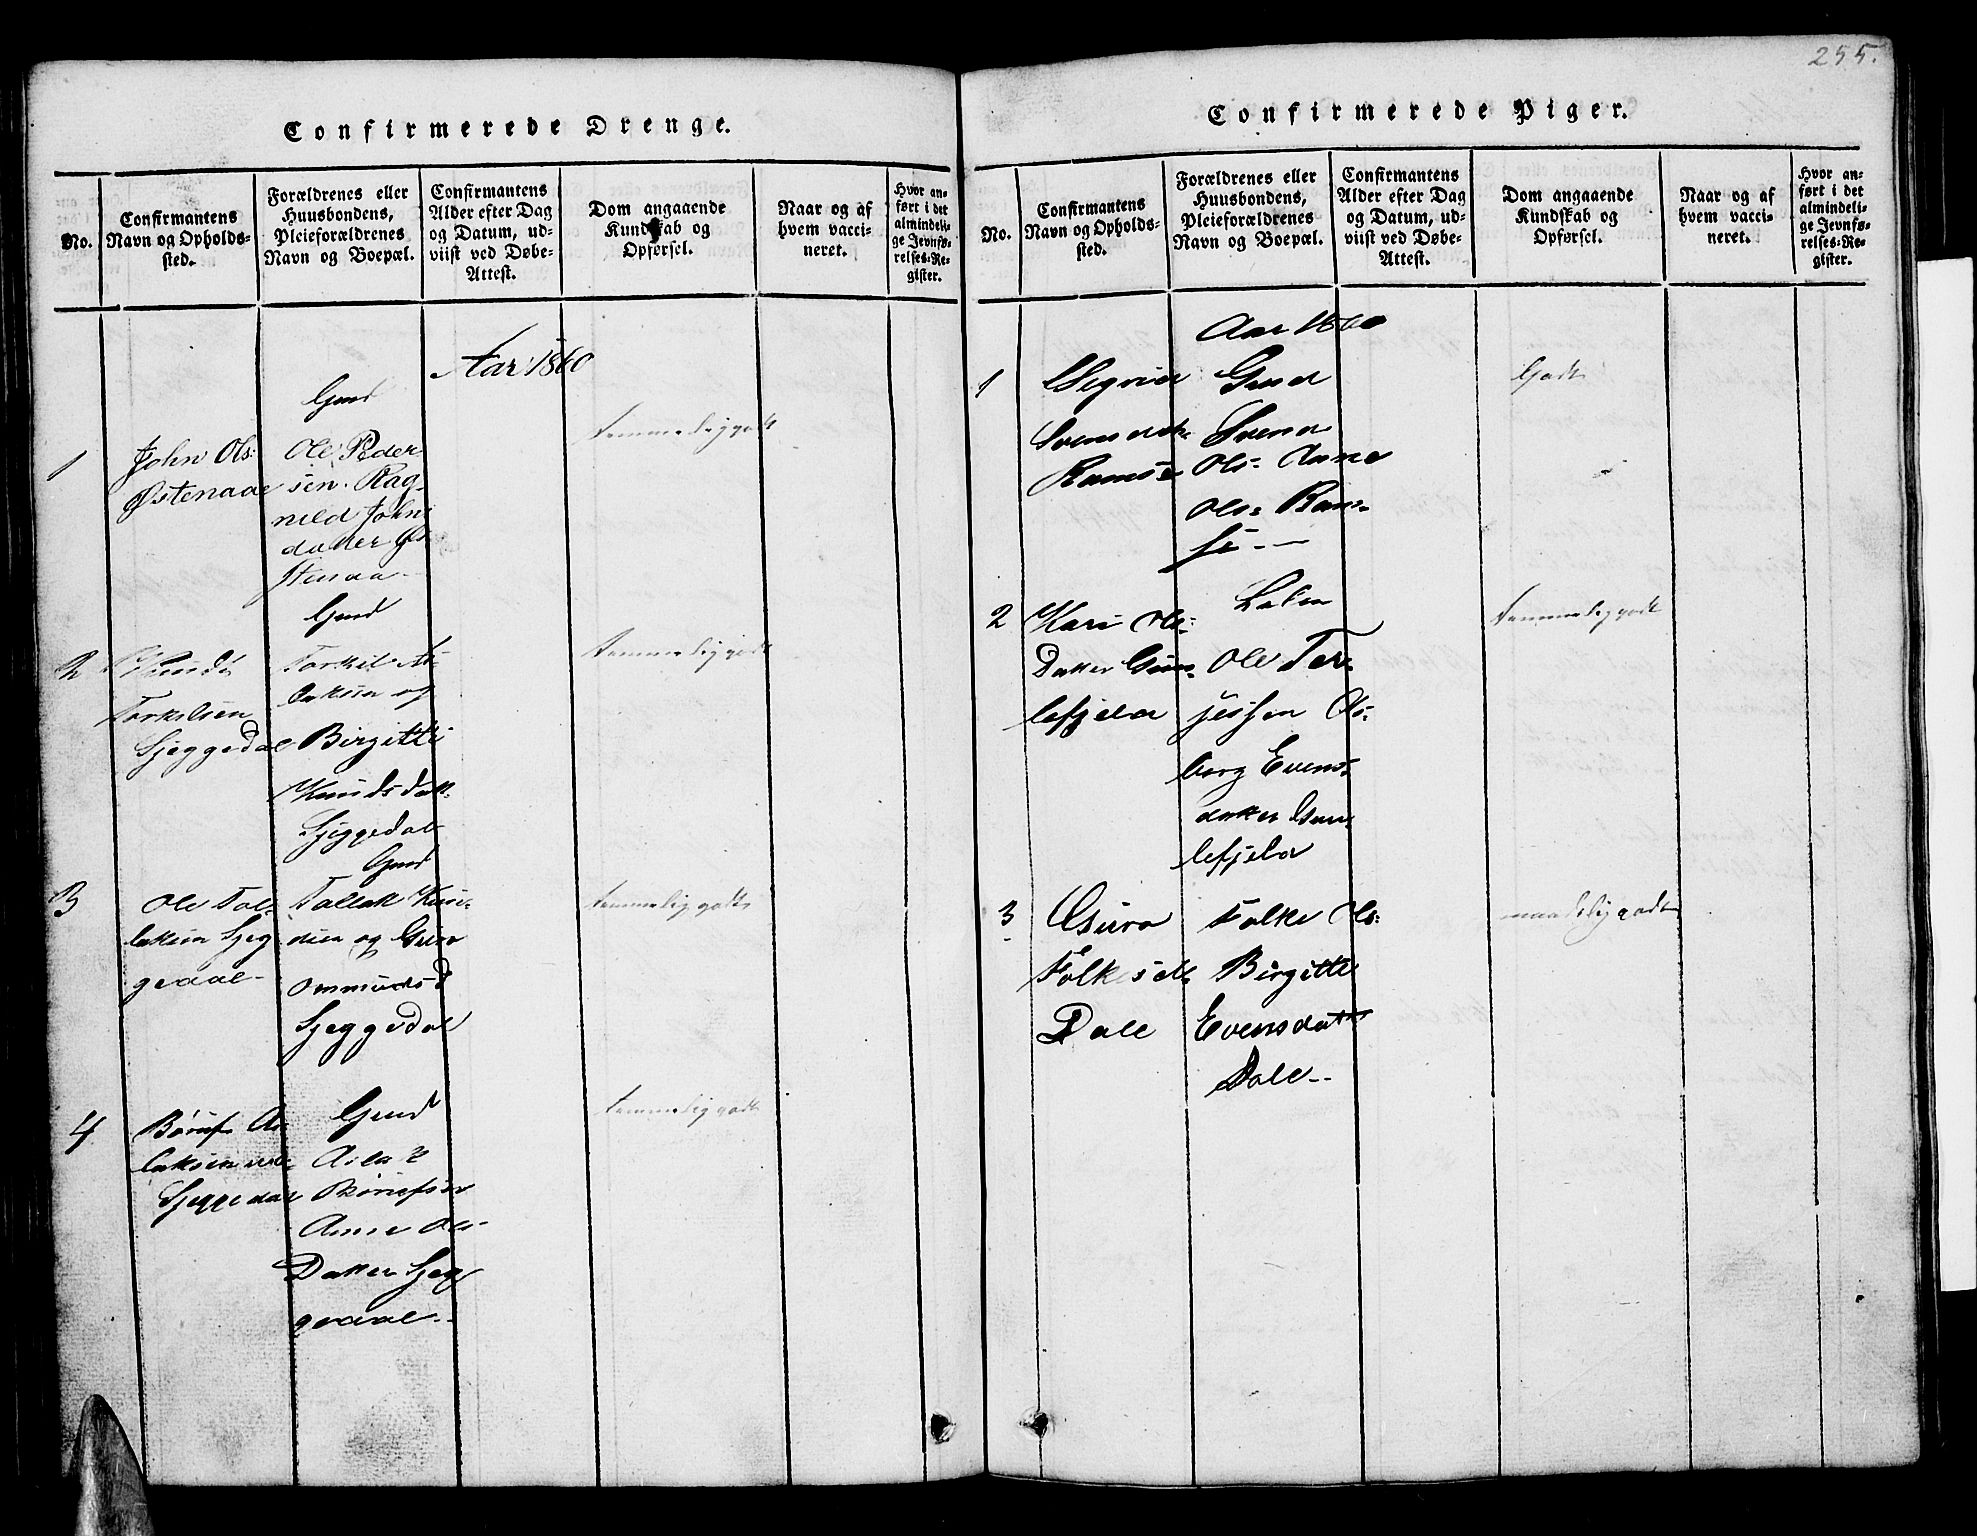 255.
Confirmerede Drenge.
No.
Confirmantens
Navn og Opholds-
sted.
Forældrenes eller
Huusbondens,
Pleieforældrenes
Navn og Boepæl.
Confirmantens
Alder efter Dag
og Datum, ud-
viist ved Døbe-
Attest.
Dom angaaende
Kundskab og
Opførsel.
Naar og af
hvem vacci-
neret.
Hvor an-
ført i det
almindeli-
ge Jevnfø-
relses-Re-
gister.
Aar 1860
1
John Ols:
Østenaae
Gmd
Ole Peder
sen. Rag
nild John
datter Øs
tenaa
temmelig godt
2
Knud
Torkelsen
Sjeggedal
Gmd
Torkil As-
laksen og
Birgitte
Knudsdatt.
Sjeggedal
temmelig godt
3
Ole Tal-
laksen Sjeg
gedal
Gmd
Tallak Knu-
dsen og Guro
Ommundsd
Sjeggedal
temmelig godt
4
Børuf As-
laksen
Sjeggedal
Gmd
Aslak
Børufsen
Anne Ols-
Datter Sjeg
gedal
temmelig godt
Confirmerede Piger.
No.
Confirmantens
Navn og Opholds-
sted.
Forældrenes eller
Huusbondens,
Pleieforældrenes
Navn og Boepæl.
Confirmantens
Alder efter Dag
og Datum, ud-
viist ved Døbe-
Attest.
Dom angaaende
Kundskab og
Opførsel.
Naar og af
hvem vacci-
neret.
Hvor an-
ført i det
almindeli-
ge Jevnfø-
relses-Re-
gister.
Aar 1860
1
Sigrid
Svensdatt.
Ramse
Gmd
Svend
Ols- Anne
Ols- Ram-
se
Godt
2
Kari Ols-
Datter Gun-
lefjeld
Ole Ter-
jessen As-
borg Evens-
datter Gun-
lefjeld
temmelig godt
3
Guro
Folkesdt.
Dale
Folke Ols:
Birgitte
Evensdatt
Dale
maadelig godt